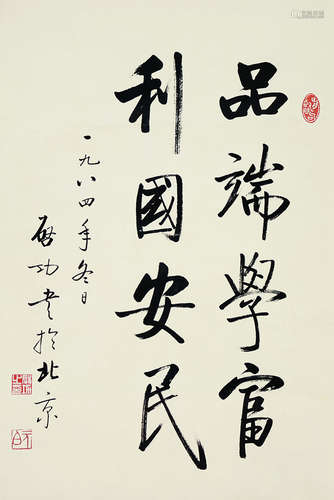 品端學富
利國安民
一九八四年冬日
啟功書於北京